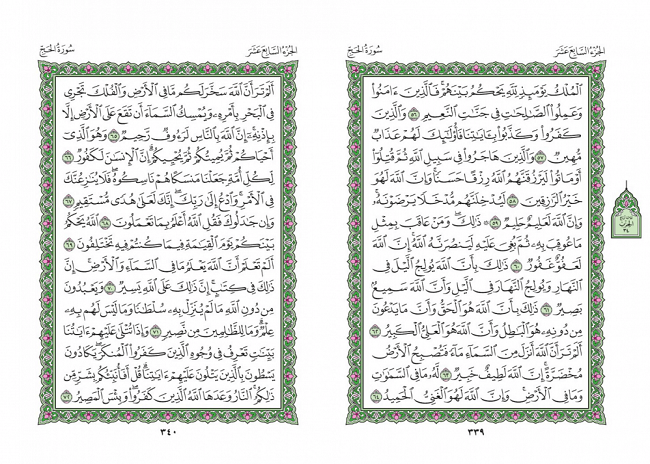 الجزء السابع عشر
سورة الحج
ٱلْمُلْكُ يَوْمَئِذٍ لِّلَّهِ يَحْكُمُ بَيْنَهُمْ ۚ فَٱلَّذِينَ ءَامَنُوا۟
وَعَمِلُوا۟ ٱلصَّـٰلِحَـٰتِ فِى جَنَّـٰتِ ٱلنَّعِيمِ ٥٦ وَٱلَّذِينَ
كَفَرُوا۟ وَكَذَّبُوا۟ بِـَٔايَـٰتِنَا فَأُو۟لَـٰٓئِكَ لَهُمْ عَذَابٌ
مُّهِينٌ ٥٧ وَٱلَّذِينَ هَاجَرُوا۟ فِى سَبِيلِ ٱللَّهِ ثُمَّ قُتِلُوٓا۟
أَوْ مَاتُوا۟ لَيَرْزُقَنَّهُمُ ٱللَّهُ رِزْقًا حَسَنًا ۚ وَإِنَّ ٱللَّهَ لَهُوَ
خَيْرُ ٱلرَّٰزِقِينَ ٥٨ لَيُدْخِلَنَّهُم مُّدْخَلًا يَرْضَوْنَهُۥ ۗ
وَإِنَّ ٱللَّهَ لَعَلِيمٌ حَلِيمٌ ٥٩ ۞ ذَٰلِكَ وَمَنْ عَاقَبَ بِمِثْلِ
مَا عُوقِبَ بِهِۦ ثُمَّ بُغِىَ عَلَيْهِ لَيَنصُرَنَّهُ ٱللَّهُ ۗ إِنَّ ٱللَّهَ
لَعَفُوٌّ غَفُورٌ ٦٠ ذَٰلِكَ بِأَنَّ ٱللَّهَ يُولِجُ ٱلَّيْلَ فِى
ٱلنَّهَارِ وَيُولِجُ ٱلنَّهَارَ فِى ٱلَّيْلِ وَأَنَّ ٱللَّهَ سَمِيعٌۢ
بَصِيرٌ ٦١ ذَٰلِكَ بِأَنَّ ٱللَّهَ هُوَ ٱلْحَقُّ وَأَنَّ مَا يَدْعُونَ
مِن دُونِهِۦ هُوَ ٱلْبَـٰطِلُ وَأَنَّ ٱللَّهَ هُوَ ٱلْعَلِىُّ ٱلْكَبِيرُ ٦٢
أَلَمْ تَرَ أَنَّ ٱللَّهَ أَنزَلَ مِنَ ٱلسَّمَآءِ مَآءً فَتُصْبِحُ ٱلْأَرْضُ
مُخْضَرَّةً ۗ إِنَّ ٱللَّهَ لَطِيفٌ خَبِيرٌ ٦٣ لَّهُۥ مَا فِى ٱلسَّمَـٰوَٰتِ
وَمَا فِى ٱلْأَرْضِ ۗ وَإِنَّ ٱللَّهَ لَهُوَ ٱلْغَنِىُّ ٱلْحَمِيدُ ٦٤
٣٣٩
الجزء السابع عشر
سورة الحج
أَلَمْ تَرَ أَنَّ ٱللَّهَ سَخَّرَ لَكُم مَّا فِى ٱلْأَرْضِ وَٱلْفُلْكَ تَجْرِى
فِى ٱلْبَحْرِ بِأَمْرِهِۦ وَيُمْسِكُ ٱلسَّمَآءَ أَن تَقَعَ عَلَى ٱلْأَرْضِ إِلَّا
بِإِذْنِهِۦٓ ۗ إِنَّ ٱللَّهَ بِٱلنَّاسِ لَرَءُوفٌ رَّحِيمٌ ٦٥ وَهُوَ ٱلَّذِىٓ
أَحْيَاكُمْ ثُمَّ يُمِيتُكُمْ ثُمَّ يُحْيِيكُمْ ۗ إِنَّ ٱلْإِنسَـٰنَ لَكَفُورٌ ٦٦
لِّكُلِّ أُمَّةٍ جَعَلْنَا مَنسَكًا هُمْ نَاسِكُوهُ ۖ فَلَا يُنَـٰزِعُنَّكَ
فِى ٱلْأَمْرِ ۚ وَٱدْعُ إِلَىٰ رَبِّكَ ۖ إِنَّكَ لَعَلَىٰ هُدًى مُّسْتَقِيمٍ ٦٧
وَإِن جَـٰدَلُوكَ فَقُلِ ٱللَّهُ أَعْلَمُ بِمَا تَعْمَلُونَ ٦٨ ٱللَّهُ يَحْكُمُ
بَيْنَكُمْ يَوْمَ ٱلْقِيَـٰمَةِ فِيمَا كُنتُمْ فِيهِ تَخْتَلِفُونَ ٦٩
أَلَمْ تَعْلَمْ أَنَّ ٱللَّهَ يَعْلَمُ مَا فِى ٱلسَّمَآءِ وَٱلْأَرْضِ ۗ إِنَّ
ذَٰلِكَ فِى كِتَـٰبٍ ۚ إِنَّ ذَٰلِكَ عَلَى ٱللَّهِ يَسِيرٌ ٧٠ وَيَعْبُدُونَ
مِن دُونِ ٱللَّهِ مَا لَمْ يُنَزِّلْ بِهِۦ سُلْطَـٰنًا وَمَا لَيْسَ لَهُم بِهِۦ
عِلْمٌ ۗ وَمَا لِلظَّـٰلِمِينَ مِن نَّصِيرٍ ٧١ وَإِذَا تُتْلَىٰ عَلَيْهِمْ ءَايَـٰتُنَا
بَيِّنَـٰتٍ تَعْرِفُ فِى وُجُوهِ ٱلَّذِينَ كَفَرُوا۟ ٱلْمُنكَرَ ۖ يَكَادُونَ
يَسْطُونَ بِٱلَّذِينَ يَتْلُونَ عَلَيْهِمْ ءَايَـٰتِنَا ۗ قُلْ أَفَأُنَبِّئُكُم بِشَرٍّ مِّن
ذَٰلِكُمُ ۗ ٱلنَّارُ وَعَدَهَا ٱللَّهُ ٱلَّذِينَ كَفَرُوا۟ ۖ وَبِئْسَ ٱلْمَصِيرُ ٧٢
٣٤٠